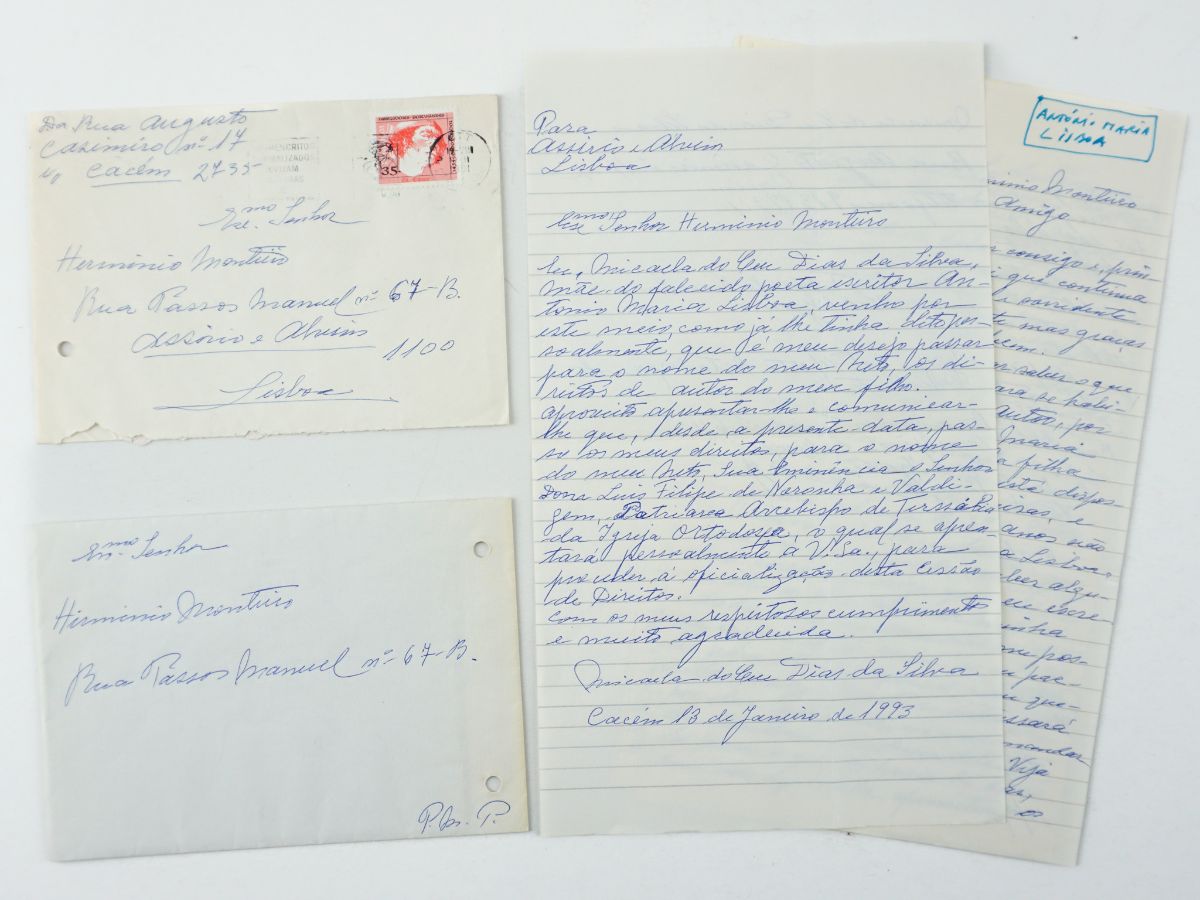 Da Rua Augusto
Casimiro nº 17
Cacém 2735
35-
Exmo. Senhor
Herminio Monteiro
Rua Passos Manuel nº 67-B.
Assirio e Alvim
1100
Lisboa
Exmo. Senhor
Herminio Monteiro
Rua Passos Manuel nº 67-B.
P. M. P.
Para
Assirio e Alvim
Lisboa
Exmo Senhor Herminio Monteiro
Eu, Micaela do Ceu Dias da Silva,
mãe do falecido poeta escritor An-
tonio Maria Lisboa, venho por
este meio, como já lhe tinha dito pes-
soalmente, que é meu desejo passar
para o nome do meu Neto, os di-
reitos de autor do meu filho.
aproveito apresentar-lhe e comunicar-
lhe que, desde a presente data, pas-
so os meus direitos, para o nome
do meu Neto, Sua Eminência o Senhor
Dom Luis Filipe de Noronha e Valdi-
gem, Patriarca Arcebispo de
da Igreja Ortodoxa, o qual se apren-
tará pessoalmente a V.Sa., para
proceder á oficialização desta Cessão
de Direitos.
com os meus respeitosos cumprimentos
e muito agradecida.
Micaela do Ceu Dias da Silva
Cacém 13 de Janeiro de 1993
ANTÓNIO MARIA
LISBOA
Monteiro
Amigo
consigo e, prin-
que continua
e ouvidente
mas graças
bem.
saber o que
para se publi-
autor, por
Maria
filha
está dispos-
e
anos não
a Lisboa,
ber algu-
eu escre-
inha
me pos-
que-
issará
mandar
Vija
os